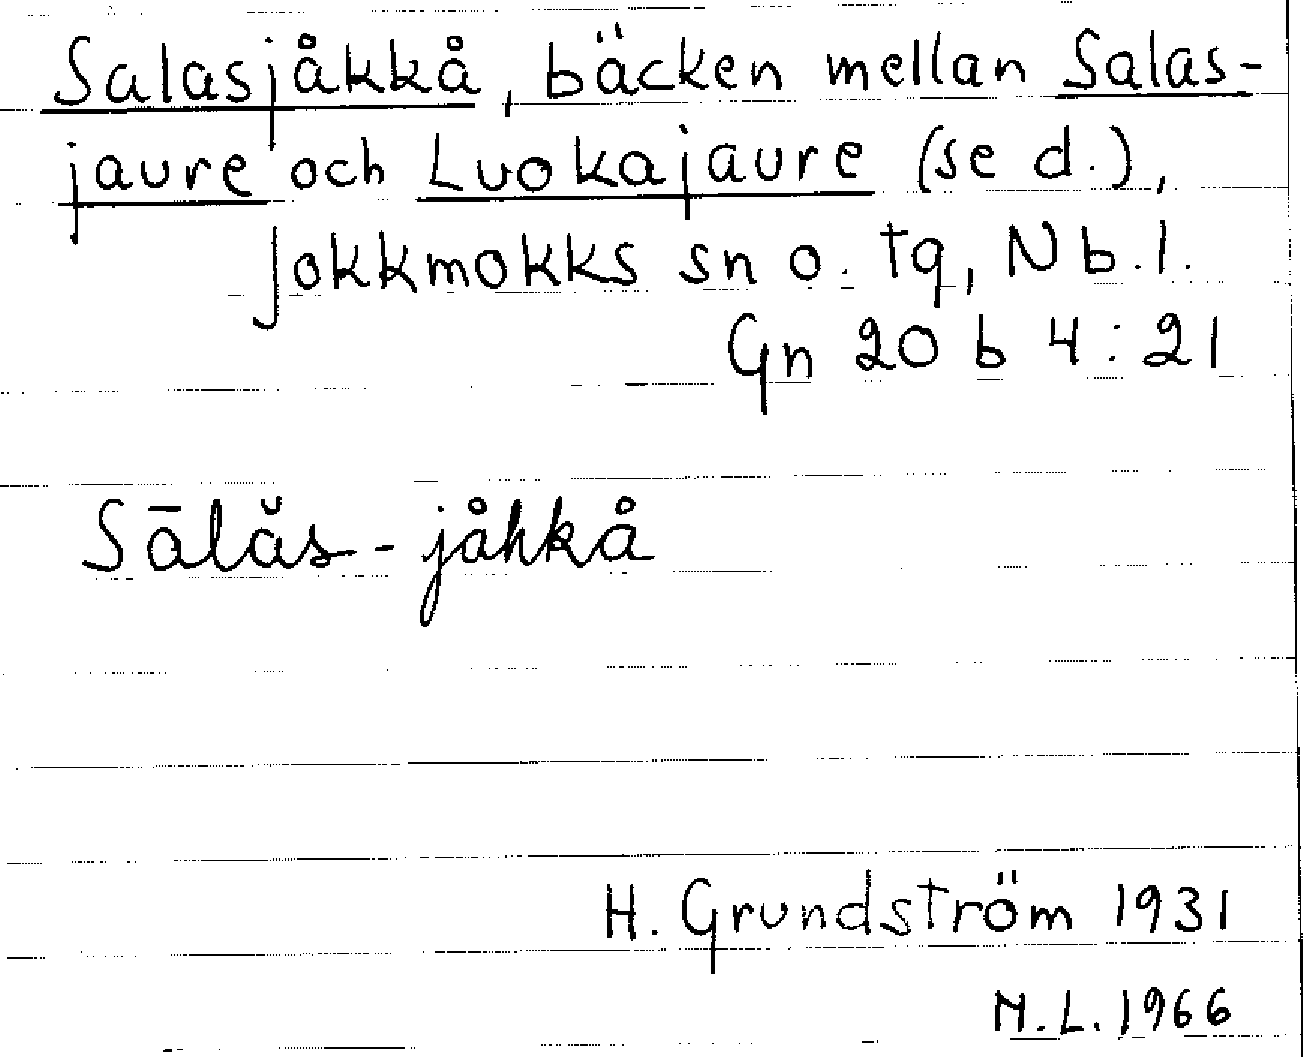 Salasjåkkå, bäcken mellan Salas-
jaure och Luokajaure (se d.),
Jokkmokks sn o. tg, Nb.l.
Gn 20 b 4:21
Sālăs-jåhkå
H. Grundström 1931
M.L. 1966